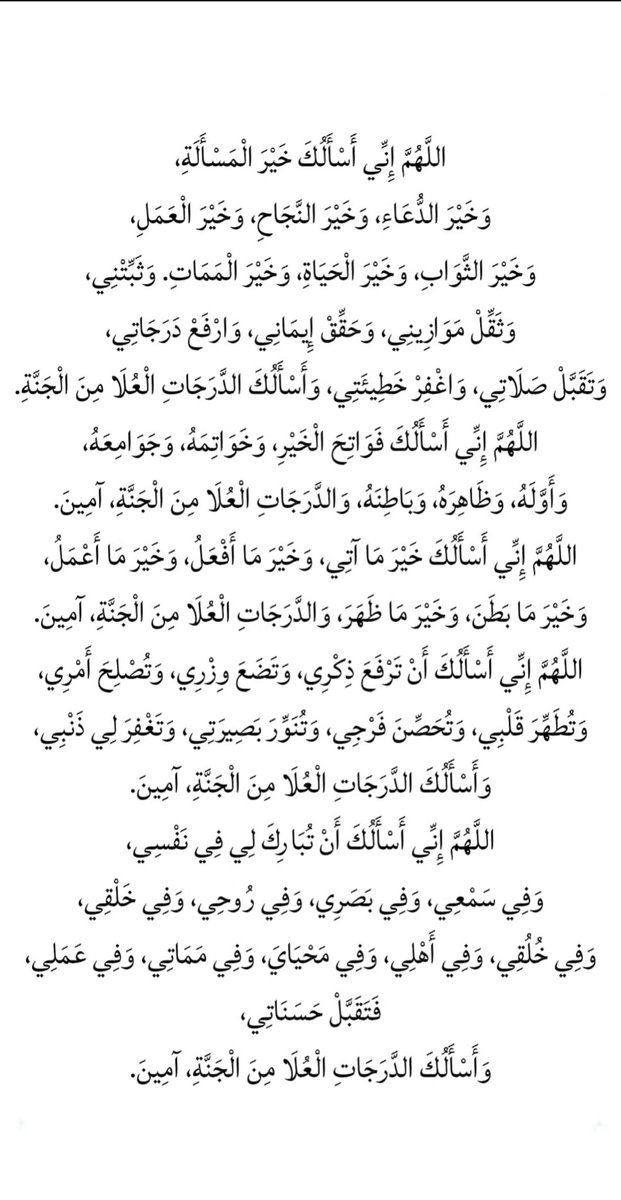 اللَّهُمَّ إِنِّي أَسْأَلُكَ خَيْرَ الْمَسْأَلَةِ،
وَخَيْرَ الدُّعَاءِ، وَخَيْرَ النَّجَاحِ، وَخَيْرَ الْعَمَلِ،
وَخَيْرَ الثَّوَابِ، وَخَيْرَ الْحَيَاةِ، وَخَيْرَ الْمَمَاتِ. وَثَبِّتْنِي،
وَثَقِّلْ مَوَازِينِي، وَحَقِّقْ إِيمَانِي، وَارْفَعْ دَرَجَاتِي،
وَتَقَبَّلْ صَلَاتِي، وَاغْفِرْ خَطِيئَتِي، وَأَسْأَلُكَ الدَّرَجَاتِ الْعُلَا مِنَ الْجَنَّةِ.
اللَّهُمَّ إِنِّي أَسْأَلُكَ فَوَاتِحَ الْخَيْرِ، وَخَوَاتِمَهُ، وَجَوَامِعَهُ،
وَأَوَّلَهُ، وَظَاهِرَهُ، وَبَاطِنَهُ، وَالدَّرَجَاتِ الْعُلَا مِنَ الْجَنَّةِ، آمِينَ.
اللَّهُمَّ إِنِّي أَسْأَلُكَ خَيْرَ مَا آتِي، وَخَيْرَ مَا أَفْعَلُ، وَخَيْرَ مَا أَعْمَلُ،
وَخَيْرَ مَا بَطَنَ، وَخَيْرَ مَا ظَهَرَ، وَالدَّرَجَاتِ الْعُلَا مِنَ الْجَنَّةِ، آمِينَ.
اللَّهُمَّ إِنِّي أَسْأَلُكَ أَنْ تَرْفَعَ ذِكْرِي، وَتَضَعَ وِزْرِي، وَتُصْلِحَ أَمْرِي،
وَتُطَهِّرَ قَلْبِي، وَتُحَصِّنَ فَرْجِي، وَتُنَوِّرَ بَصِيرَتِي، وَتَغْفِرَ لِي ذَنْبِي،
وَأَسْأَلُكَ الدَّرَجَاتِ الْعُلَا مِنَ الْجَنَّةِ، آمِينَ.
اللَّهُمَّ إِنِّي أَسْأَلُكَ أَنْ تُبَارِكَ لِي فِي نَفْسِي،
وَفِي سَمْعِي، وَفِي بَصَرِي، وَفِي رُوحِي، وَفِي خَلْقِي،
وَفِي خُلُقِي، وَفِي أَهْلِي، وَفِي مَحْيَايَ، وَفِي مَمَاتِي، وَفِي عَمَلِي،
فَتَقَبَّلْ حَسَنَاتِي،
وَأَسْأَلُكَ الدَّرَجَاتِ الْعُلَا مِنَ الْجَنَّةِ، آمِينَ.